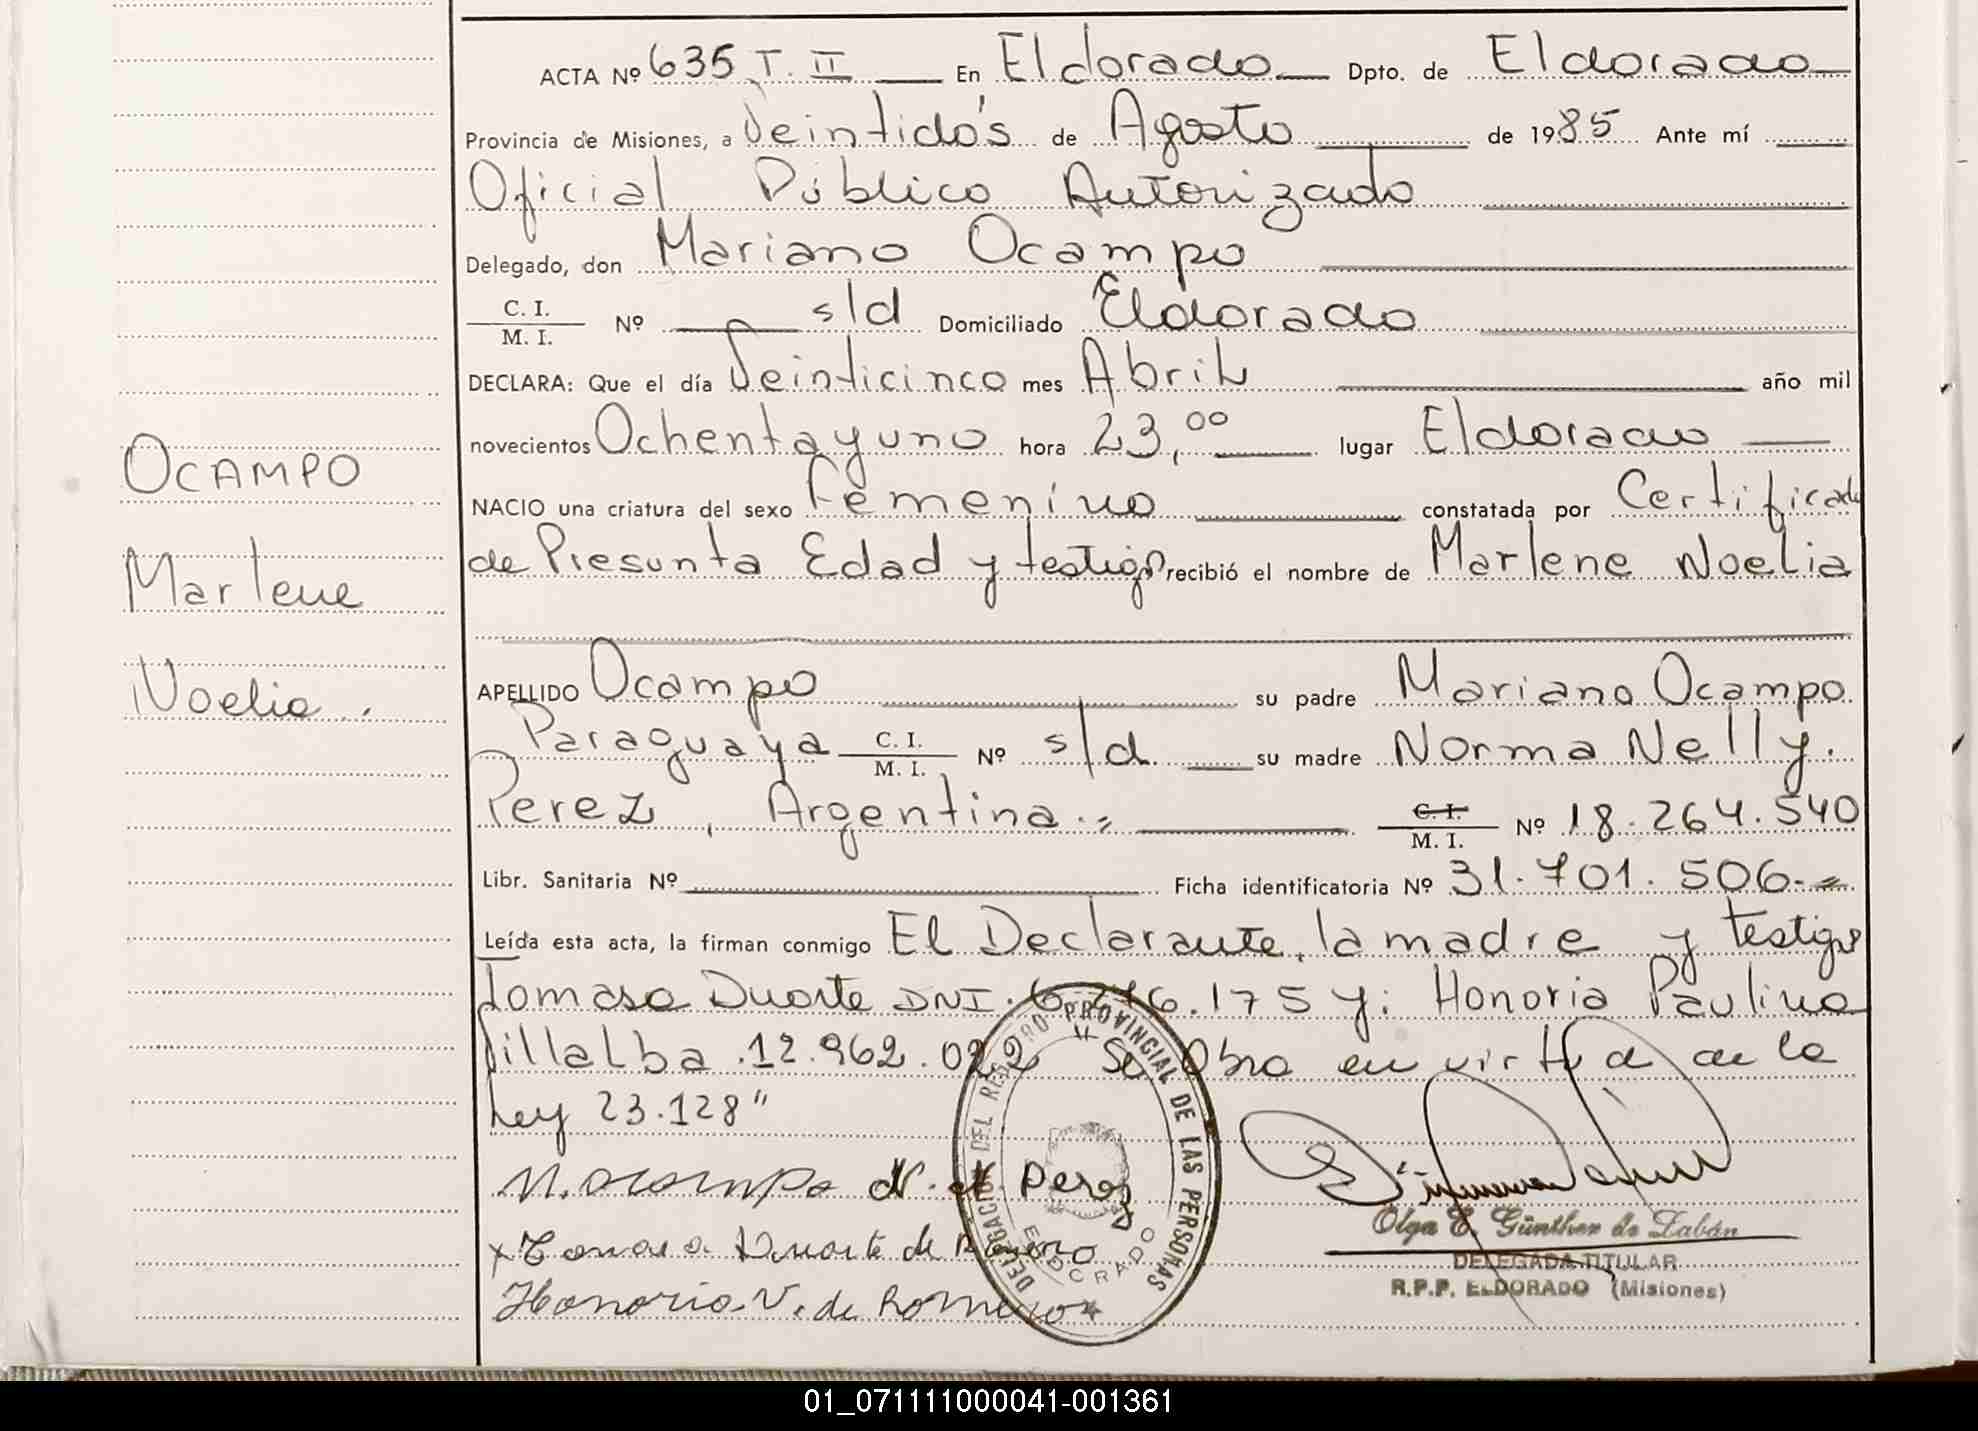 ACTA Nº 635 T. II En Eldorado Dpto. de Eldorado
Provincia de Misiones, a Veintidós de Agosto de 1985 Ante mí
Oficial Público Autorizado
Delegado, don Mariano Ocampo
C. I.
M. I. Nº s/d Domiciliado Eldorado
DECLARA: Que el día Veinticinco mes Abril año mil
novecientos Ochenta y uno hora 23,00 lugar Eldorado
NACIO una criatura del sexo Femenino constatada por Certificado
de Presunta Edad y testigos recibió el nombre de Marlene Noelia
OCAMPO
Marlene
Noelia.
APELLIDO Ocampo su padre Mariano Ocampo
Paraguaya C. I. M. I. Nº s/d su madre Norma Nelly
Perez, Argentina.= C. I. M. I. Nº 18.264.540
Libr. Sanitaria Nº Ficha identificatoria Nº 31.701.506.=
Leída esta acta, la firman conmigo El Declarante, la madre y testigos
Tomasa Duarte DNI. 6.276.175 y: Honoria Paulina
Villalba .12.962.022 "Se Obra en virtud de la
Ley 23.128"
M. Ocampo N. N Perez
x Tomasa Duarte de Romero
Honoria V. de Romero
DELEGACION DEL REGISTRO PROVINCIAL DE LAS PERSONAS
ELDORADO
Olga E. Günther de Labán
DELEGADA TITULAR
R.P.P. ELDORADO (Misiones)
01_071111000041-001361